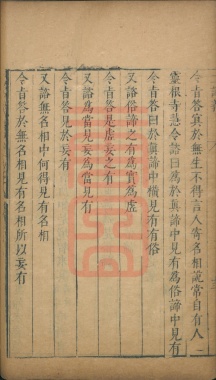 令旨答寔於無生不得言人寄名相說常自有人
靈根寺慧令諮曰爲於眞諦中見有爲俗諦中見有
令旨答曰於眞諦中橫見有有俗
又諮俗諦之有爲實爲虛
令旨答是虛妄之有
又諮爲當見妄爲當見有
令旨答見於妄有
又諮無名相中何得見有名相
令旨答於無名相見有名相所以妄有